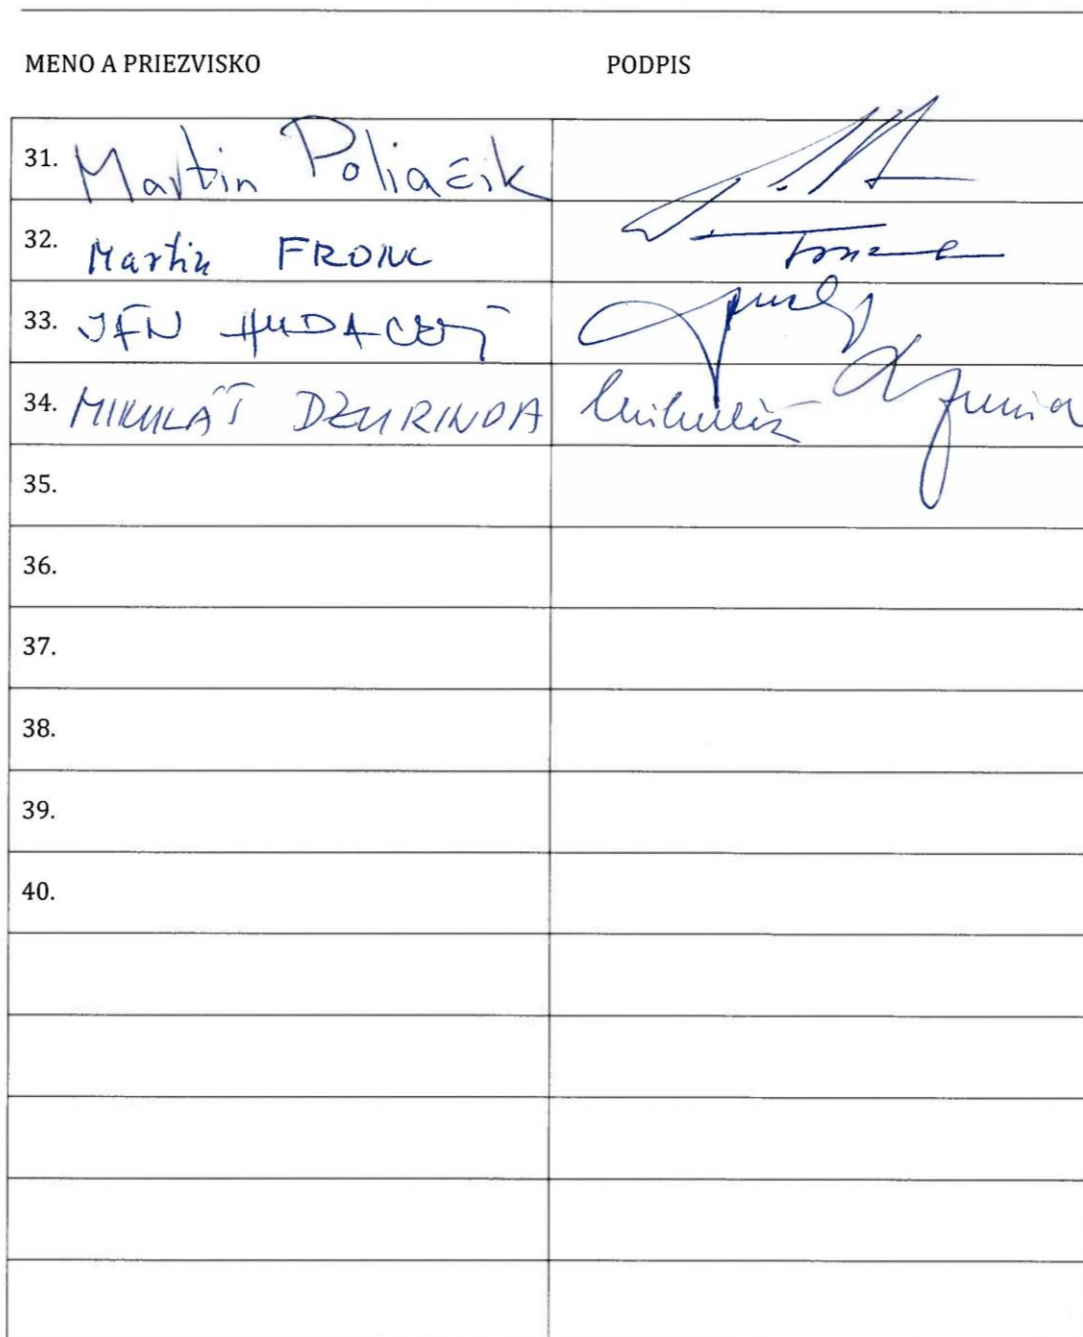 MENO A PRIEZVISKO PODPIS
31. Martin Poliačik
32. Martin FRONC
33. JÁN HUDACKÝ
34. MIKULÁŠ DZURINDA Mikuláš Dzurinda
35.
36.
37.
38.
39.
40.